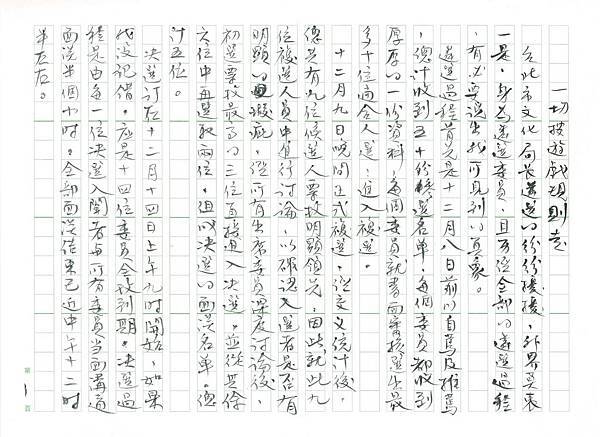 一切按遊戲規則走
台北市文化局長遴選的紛紛擾擾，外界莫衷
一是，身為遴選委員，且可從全部的遴選過程
，有必要說出我所見到的真象。
遴選過程首先是十二月八日前的自薦及推薦
，總計收到五十份候選名單，每個委員都收到
厚厚的一份資料，每個委員就書面審核選出最
多十位適合人選，進入複選。
十二月九日晚間正式複選，從交叉統計後，
總共有九位候選人票數明顯領先，因此就九
位複選人員中進行討論，以確認入選者是否有
明顯的瑕疵，從所有出席委員深度討論後，
初選票數最高的三位直接進入決選，並從其餘
六位中再選取兩位，但以決選的面談名單。總
計五位。
決選訂在十二月十四日上午九時開始，如果
我沒記錯，應是十四位委員全數到期。決選過
程是由每一位決選入圍者與所有委員當面溝通
面談半個小時。全部面談結束已近中午十二時
半左右。
第1頁